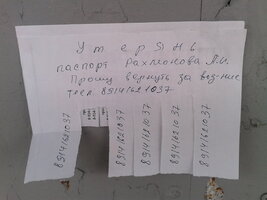 Утерян
паспорт Рахмонова А.И.
Прошу вернуть за воз-ние
тел. 89141621037
89141621037
89141621037
89141621037
89141621037
89141621037